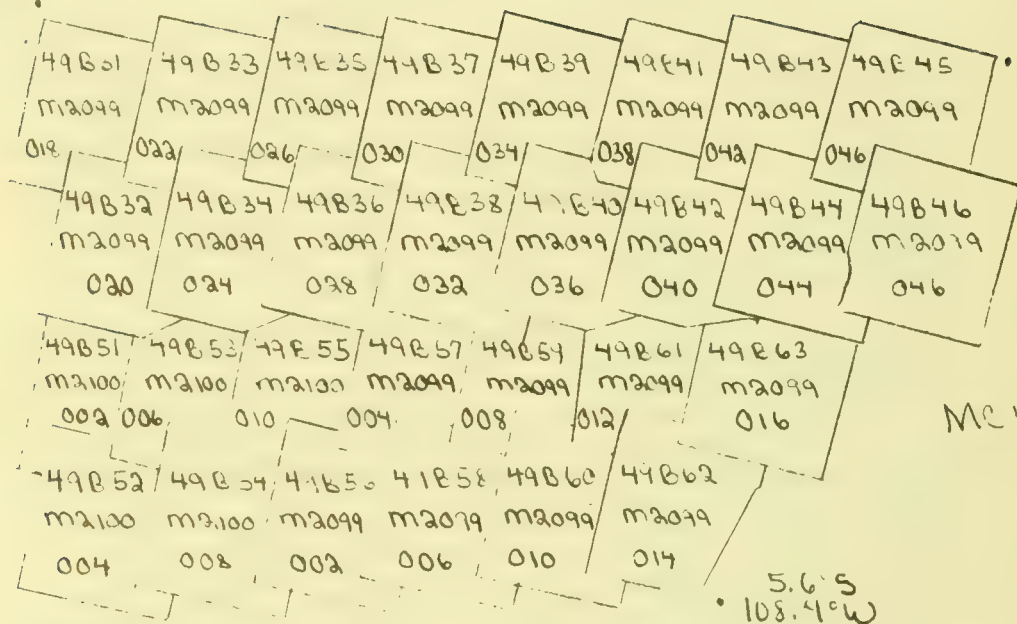 49B31 49B33 49B35 49B37 49B39 49B41 49B43 49B45
m2099 m2099 m2099 m2099 m2099 m2099 m2099 m2099
018 022 026 030 034 038 042 046
49B32 49B34 49B36 49B38 49B40 49B42 49B44 49B46
m2099 m2099 m2099 m2099 m2099 m2099 m2099 m2099
020 024 028 032 036 040 044 046
49B51 49B53 49B55 49B57 49B59 49B61 49B63
m2100 m2100 m2100 m2099 m2099 m2099 m2099
002 006 010 004 008 012 016
MC
49B52 49B54 49B56 49B58 49B60 49B62
m2100 m2100 m2099 m2099 m2099 m2099
004 008 002 006 010 014
5.6°S
108.4°W